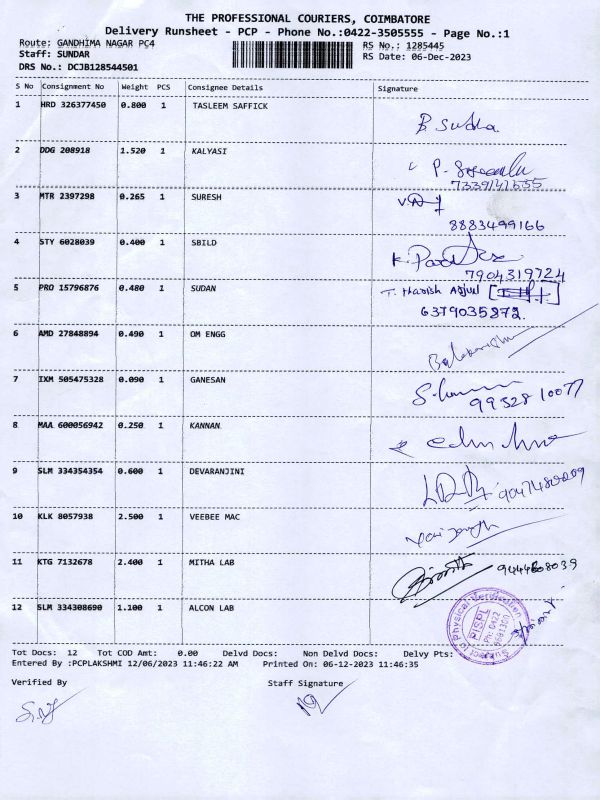 THE PROFESSIONAL COURIERS, COIMBATORE
Delivery Runsheet - PCP - Phone No.:0422-3505555 - Page No.:1
Route: GANDHIMA NAGAR PC4 RS No.: 1285445
Staff: SUNDAR RS Date: 06-Dec-2023
DRS No.: DCJB128544501
S No Consignment No Weight PCS Consignee Details Signature
1 HRD 326377450 0.800 1 TASLEEM SAFFICK
B. Sudha
2 DDG 208918 1.520 1 KALYASI
P.
7339141555
3 MTR 2397298 0.265 1 SURESH
8883499166
4 STY 6028039 0.400 1 SBILD
K.
7904319724
5 PRO 15796876 0.480 1 SUDAN T. Harish
6379035872.
6 AMD 27848894 0.490 1 OM ENGG
7 IXM 505475328 0.090 1 GANESAN
8 MAA 600056942 0.250 1 KANNAN
9 SLM 334354354 0.600 1 DEVARANJINI
10 KLK 8057938 2.500 1 VEEBEE MAC
11 KTG 7132678 2.400 1 MITHA LAB
12 SLM 334308690 1.100 1 ALCON LAB
Subject to Physical Verification
PISPL
Tot Docs: 12 Tot COD Amt: 0.00 Delvd Docs: Non Delvd Docs: Delvy Pts:
Entered By :PCPLAKSHMI 12/06/2023 11:46:22 AM Printed On: 06-12-2023 11:46:35
Verified By Staff Signature